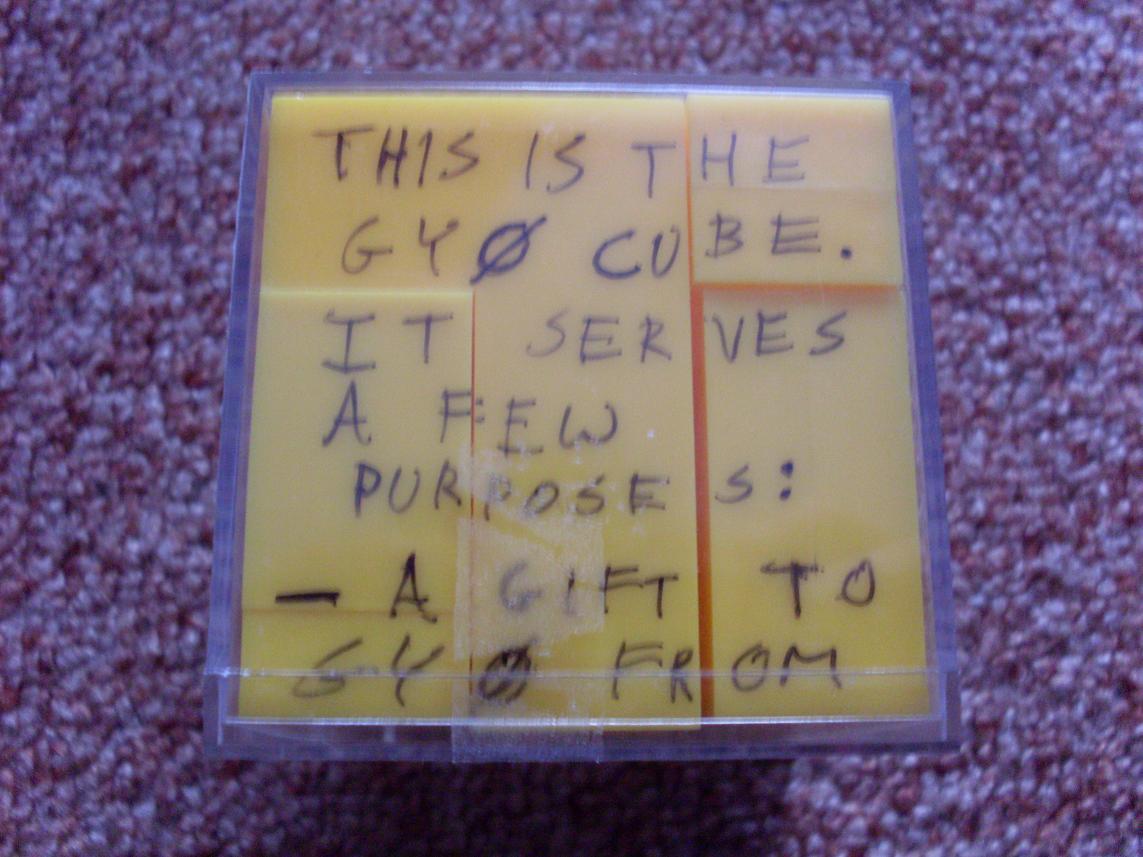 THIS IS THE
GYØ CUBE.
IT SERVES
A FEW
PURPOSES:
— A GIFT TO
GYØ FROM